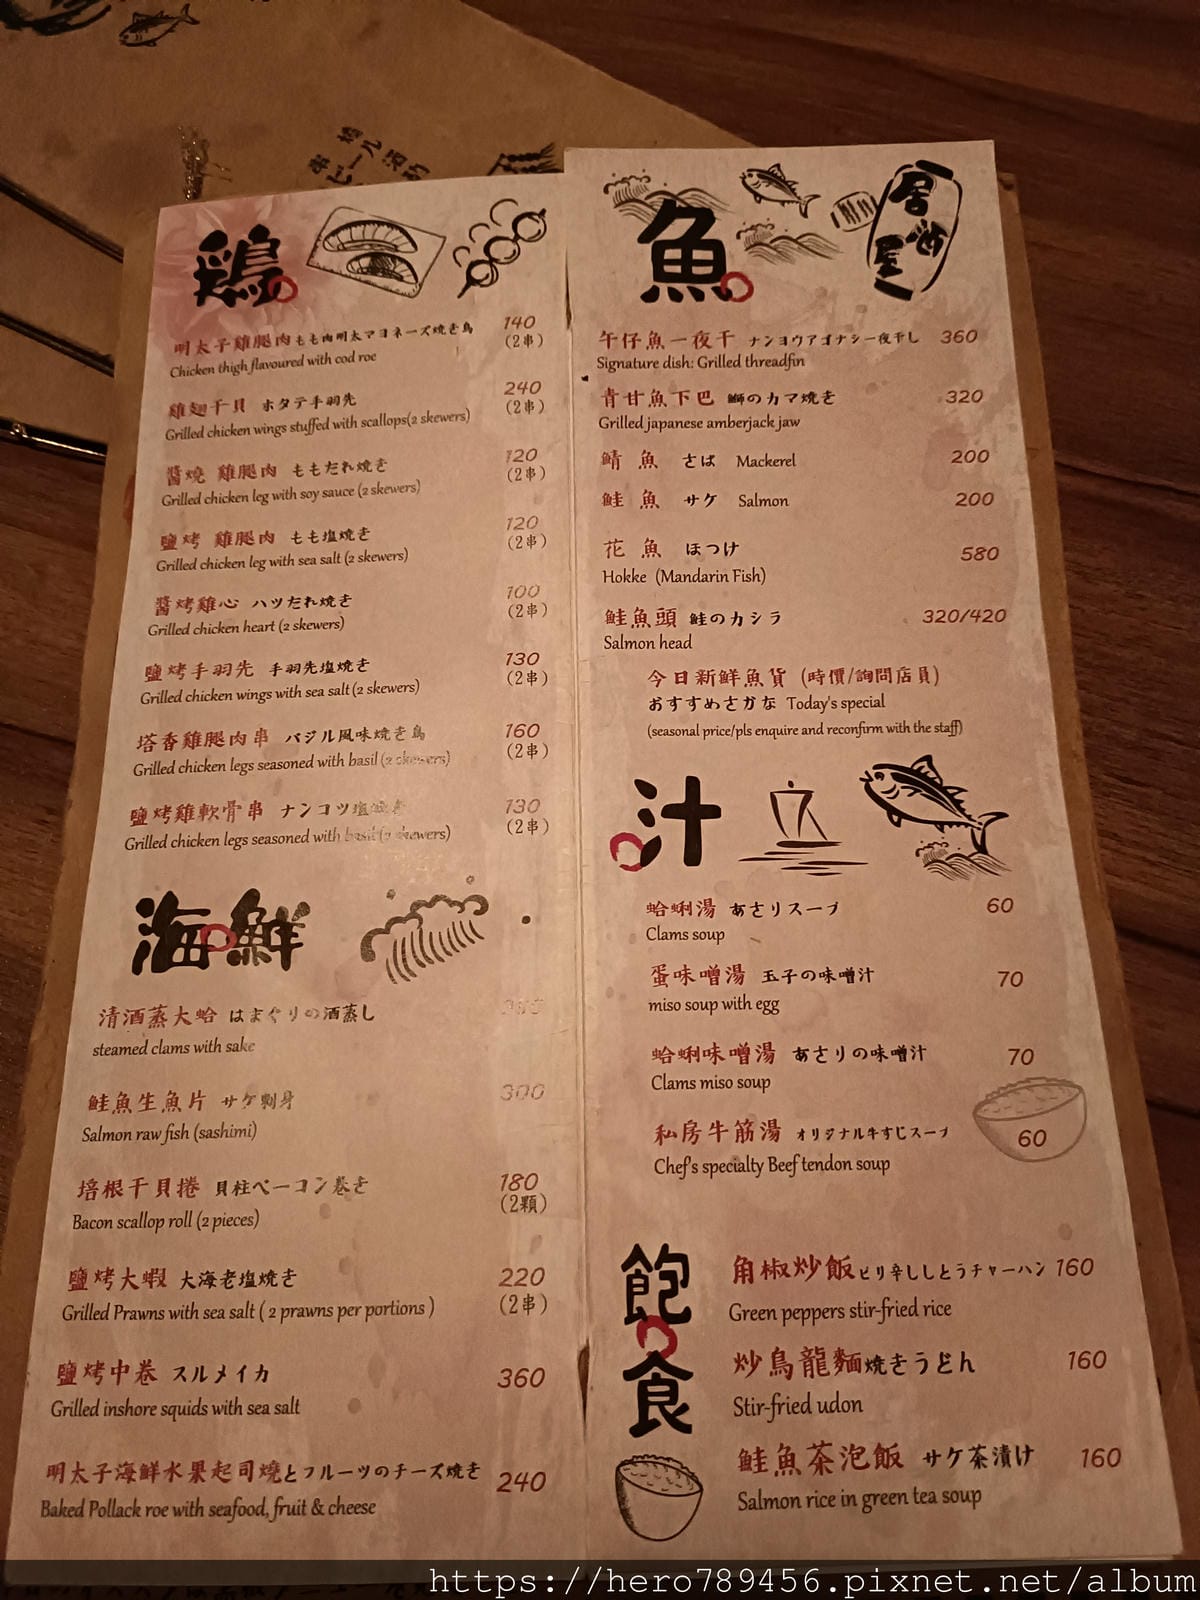 鶏
明太子雞腿肉 もも肉明太マヨネーズ焼き鳥 140
Chicken thigh flavoured with cod roe (2串)
雞翅干貝 ホタテ手羽先 240
Grilled chicken wings stuffed with scallops(2 skewers) (2串)
醬燒 雞腿肉 ももだれ焼き 120
Grilled chicken leg with soy sauce (2 skewers) (2串)
鹽烤 雞腿肉 もも塩焼き 120
Grilled chicken leg with sea salt (2 skewers) (2串)
醬烤雞心 ハツだれ焼き 100
Grilled chicken heart (2 skewers) (2串)
鹽烤手羽先 手羽先塩焼き 130
Grilled chicken wings with sea salt (2 skewers) (2串)
塔香雞腿肉串 バジル風味焼き鳥 160
Grilled chicken legs seasoned with basil (2 skewers) (2串)
鹽烤雞軟骨串 ナンコツ塩 130
Grilled chicken legs seasoned with basil (2 skewers) (2串)
海鮮
清酒蒸大蛤 はまぐりの酒蒸し
steamed clams with sake
鮭魚生魚片 サケ刺身 300
Salmon raw fish (sashimi)
培根干貝捲 貝柱ベーコン巻き 180
Bacon scallop roll (2 pieces) (2顆)
鹽烤大蝦 大海老塩焼き 220
Grilled Prawns with sea salt ( 2 prawns per portions ) (2串)
鹽烤中卷 スルメイカ 360
Grilled inshore squids with sea salt
明太子海鮮水果起司燒とフルーツのチーズ焼き 240
Baked Pollack roe with seafood, fruit & cheese
魚
居酒屋
午仔魚一夜干 ナンヨウアゴナシ一夜干し 360
Signature dish: Grilled threadfin
青甘魚下巴 鰤のカマ焼き 320
Grilled japanese amberjack jaw
鯖 魚 さば Mackerel 200
鮭 魚 サケ Salmon 200
花 魚 ほつけ 580
Hokke (Mandarin Fish)
鮭魚頭 鮭のカシラ 320/420
Salmon head
今日新鮮魚貨 (時價/詢問店員)
おすすめさかな Today's special
(seasonal price/pls enquire and reconfirm with the staff)
汁
蛤蜊湯 あさりスープ 60
Clams soup
蛋味噌湯 玉子の味噌汁 70
miso soup with egg
蛤蜊味噌湯 あさりの味噌汁 70
Clams miso soup
私房牛筋湯 オリジナル牛すじスープ 60
Chef's specialty Beef tendon soup
飽食
角椒炒飯 ピリ辛ししとうチャーハン 160
Green peppers stir-fried rice
炒烏龍麵 焼きうどん 160
Stir-fried udon
鮭魚茶泡飯 サケ茶漬け 160
Salmon rice in green tea soup
https://hero789456.pixnet.net/album